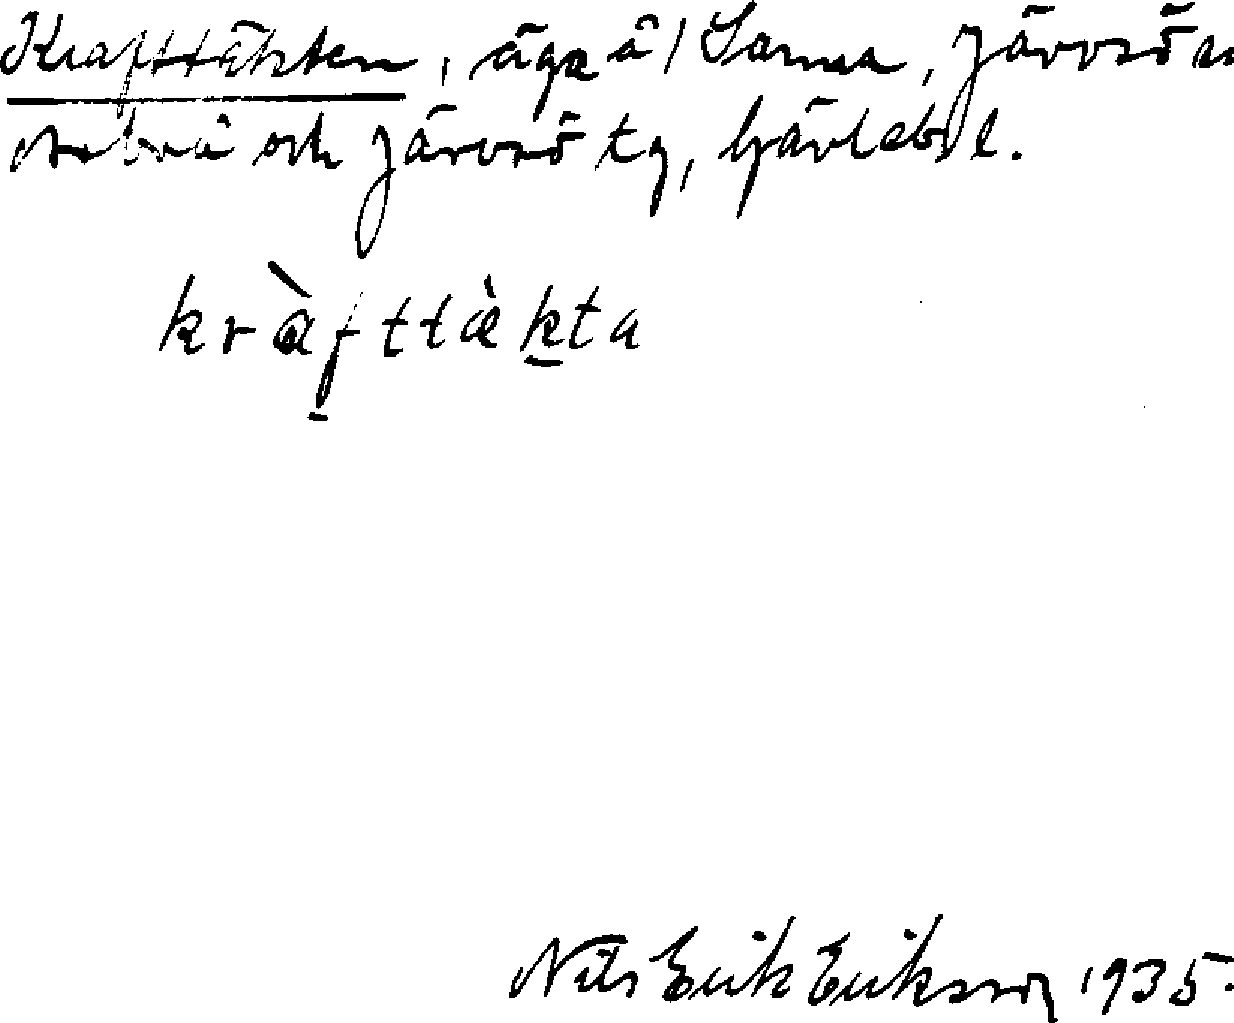 Krafttäkten, äga å / Sanna, Järvsö m
Nebvå och Järvsö tg, Gävlebl.
kràfttæ̀kta
Nils Erik Eriksson 1935.